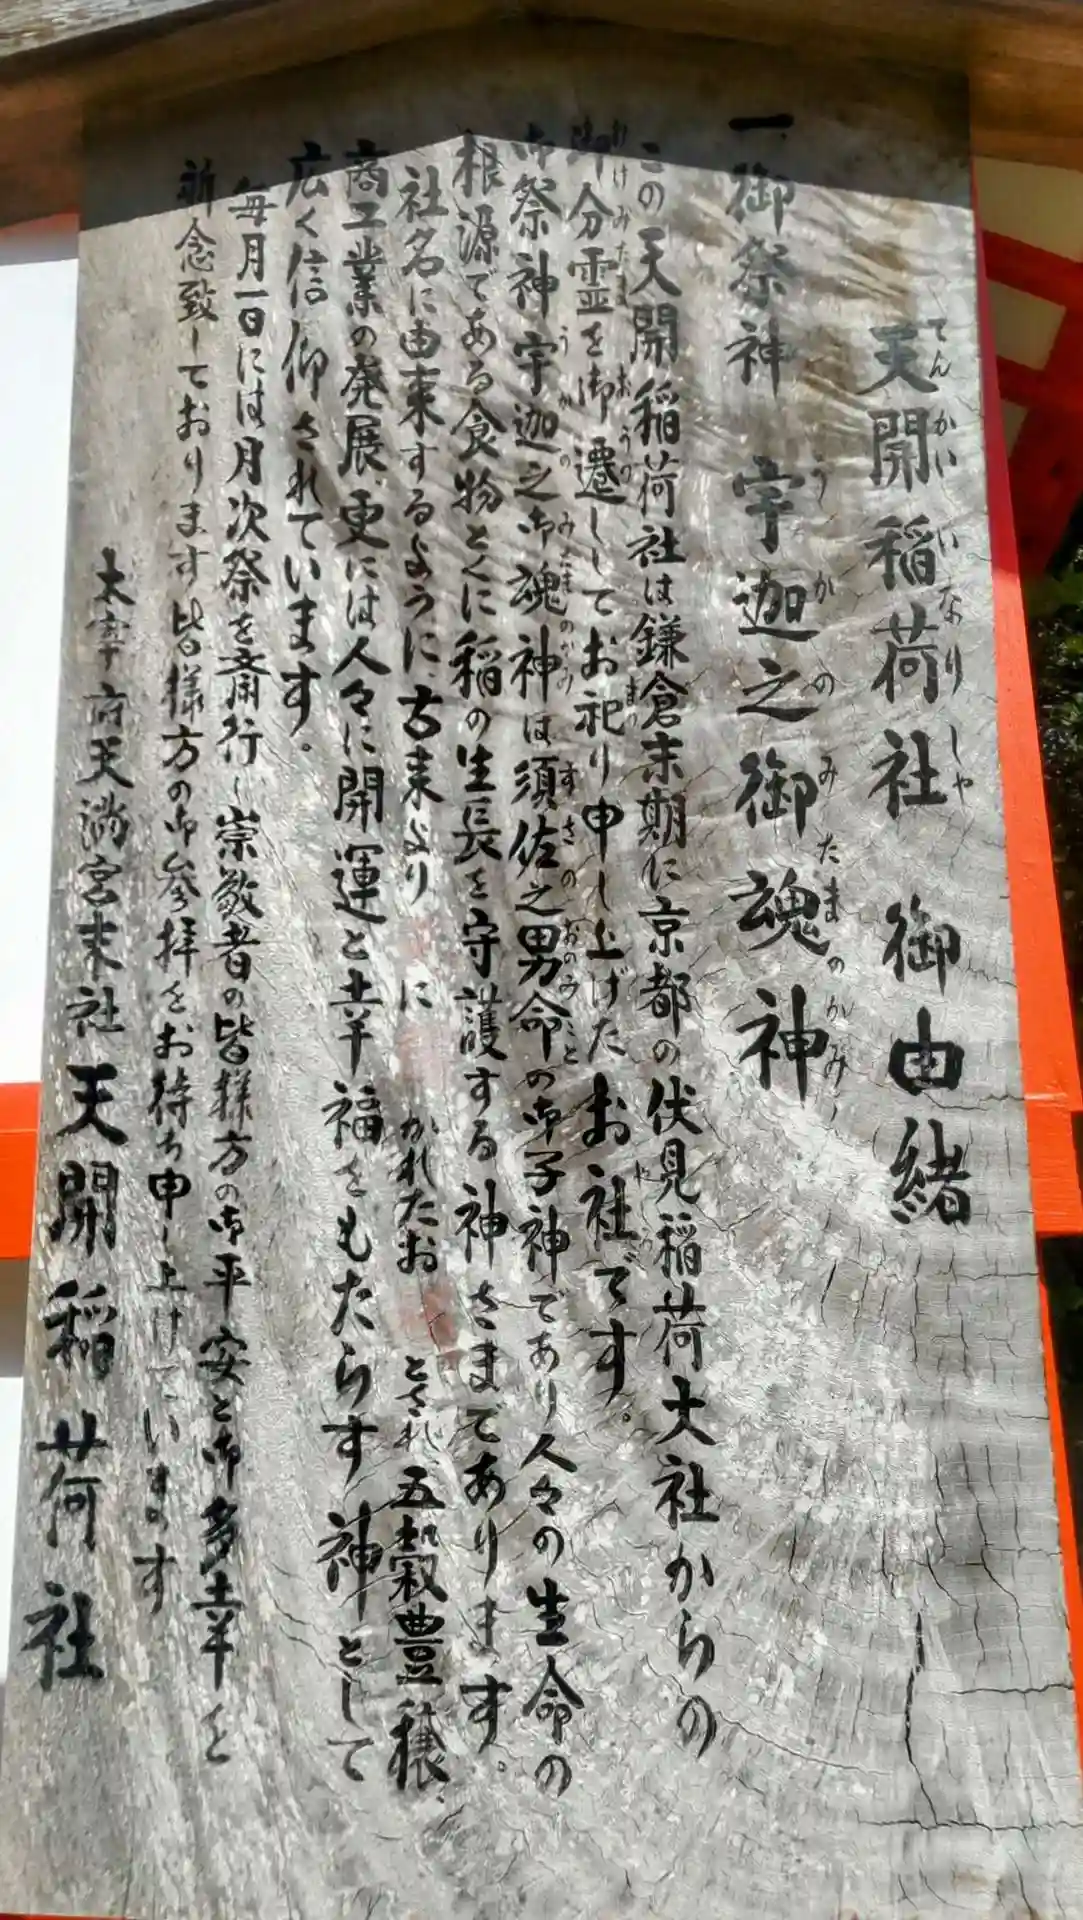 天開稲荷社 御由緒
一、御祭神 宇迦之御魂神
この天開稲荷社は鎌倉末期に京都の伏見稲荷大社からの
御分霊を御遷ししてお祀り申し上げたお社です。
御祭神宇迦之御魂神は須佐之男命の御子神であり人々の生命の
根源である食物とくに稲の生長を守護する神さまであります。
社名に由来するように、古来より に かれたお とされ 五穀豊穣、
商工業の発展、更には人々に開運と幸福をもたらす神として
広く信仰されています。
毎月一日には月次祭を斎行し崇敬者の皆様方の御平安と御多幸を
祈念致しております皆様方の御参拝をお待ち申し上げています
太宰府天満宮末社 天開稲荷社